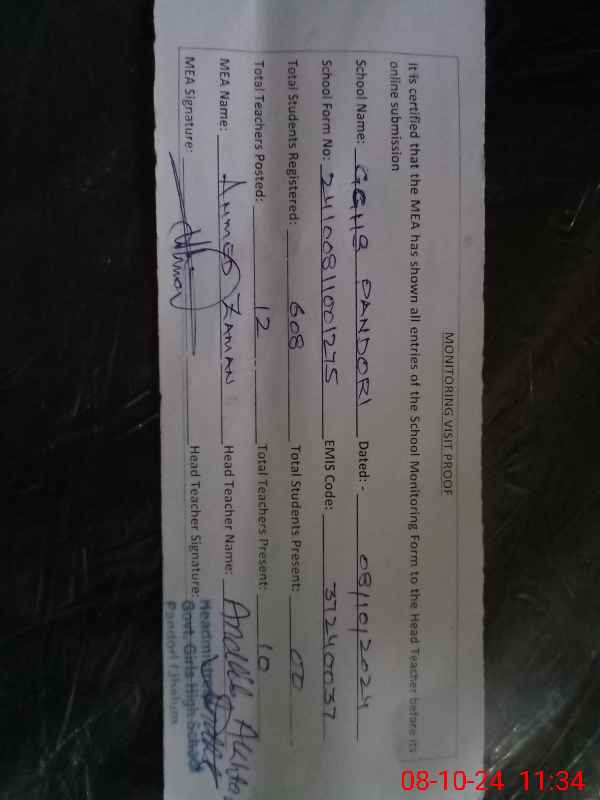 MONITORING VISIT PROOF
It is certified that the MEA has shown all entries of the School Monitoring Form to the Head Teacher before its
online submission
School Name: GGHS PANDORI Dated: - 08/10/2024
School Form No: 2410081001275 EMIS Code: 37240037
Total Students Registered: 608 Total Students Present: 00
Total Teachers Posted: 12 Total Teachers Present: 10
MEA Name: AHMED ZAMAN Head Teacher Name:
MEA Signature: Head Teacher Signature:
Headmistress
Govt. Girls High School
Pandori (Jhelum
08-10-24 11:34